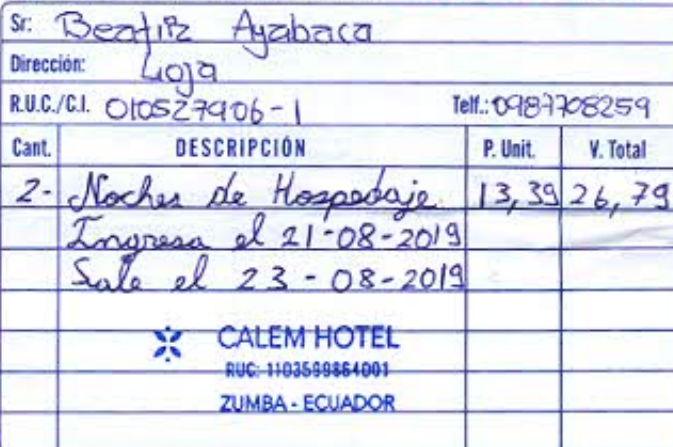 Sr: Beatriz Ayabaca
Dirección: Loja
R.U.C./C.I. 010527906-1 Telf.: 0987708259
Cant. DESCRIPCIÓN P. Unit. V. Total
2- Noches de Hospedaje. 13,39 26,79
Ingresa el 21-08-2019
Sale el 23-08-2019
CALEM HOTEL
RUC: 1103599864001
ZUMBA - ECUADOR